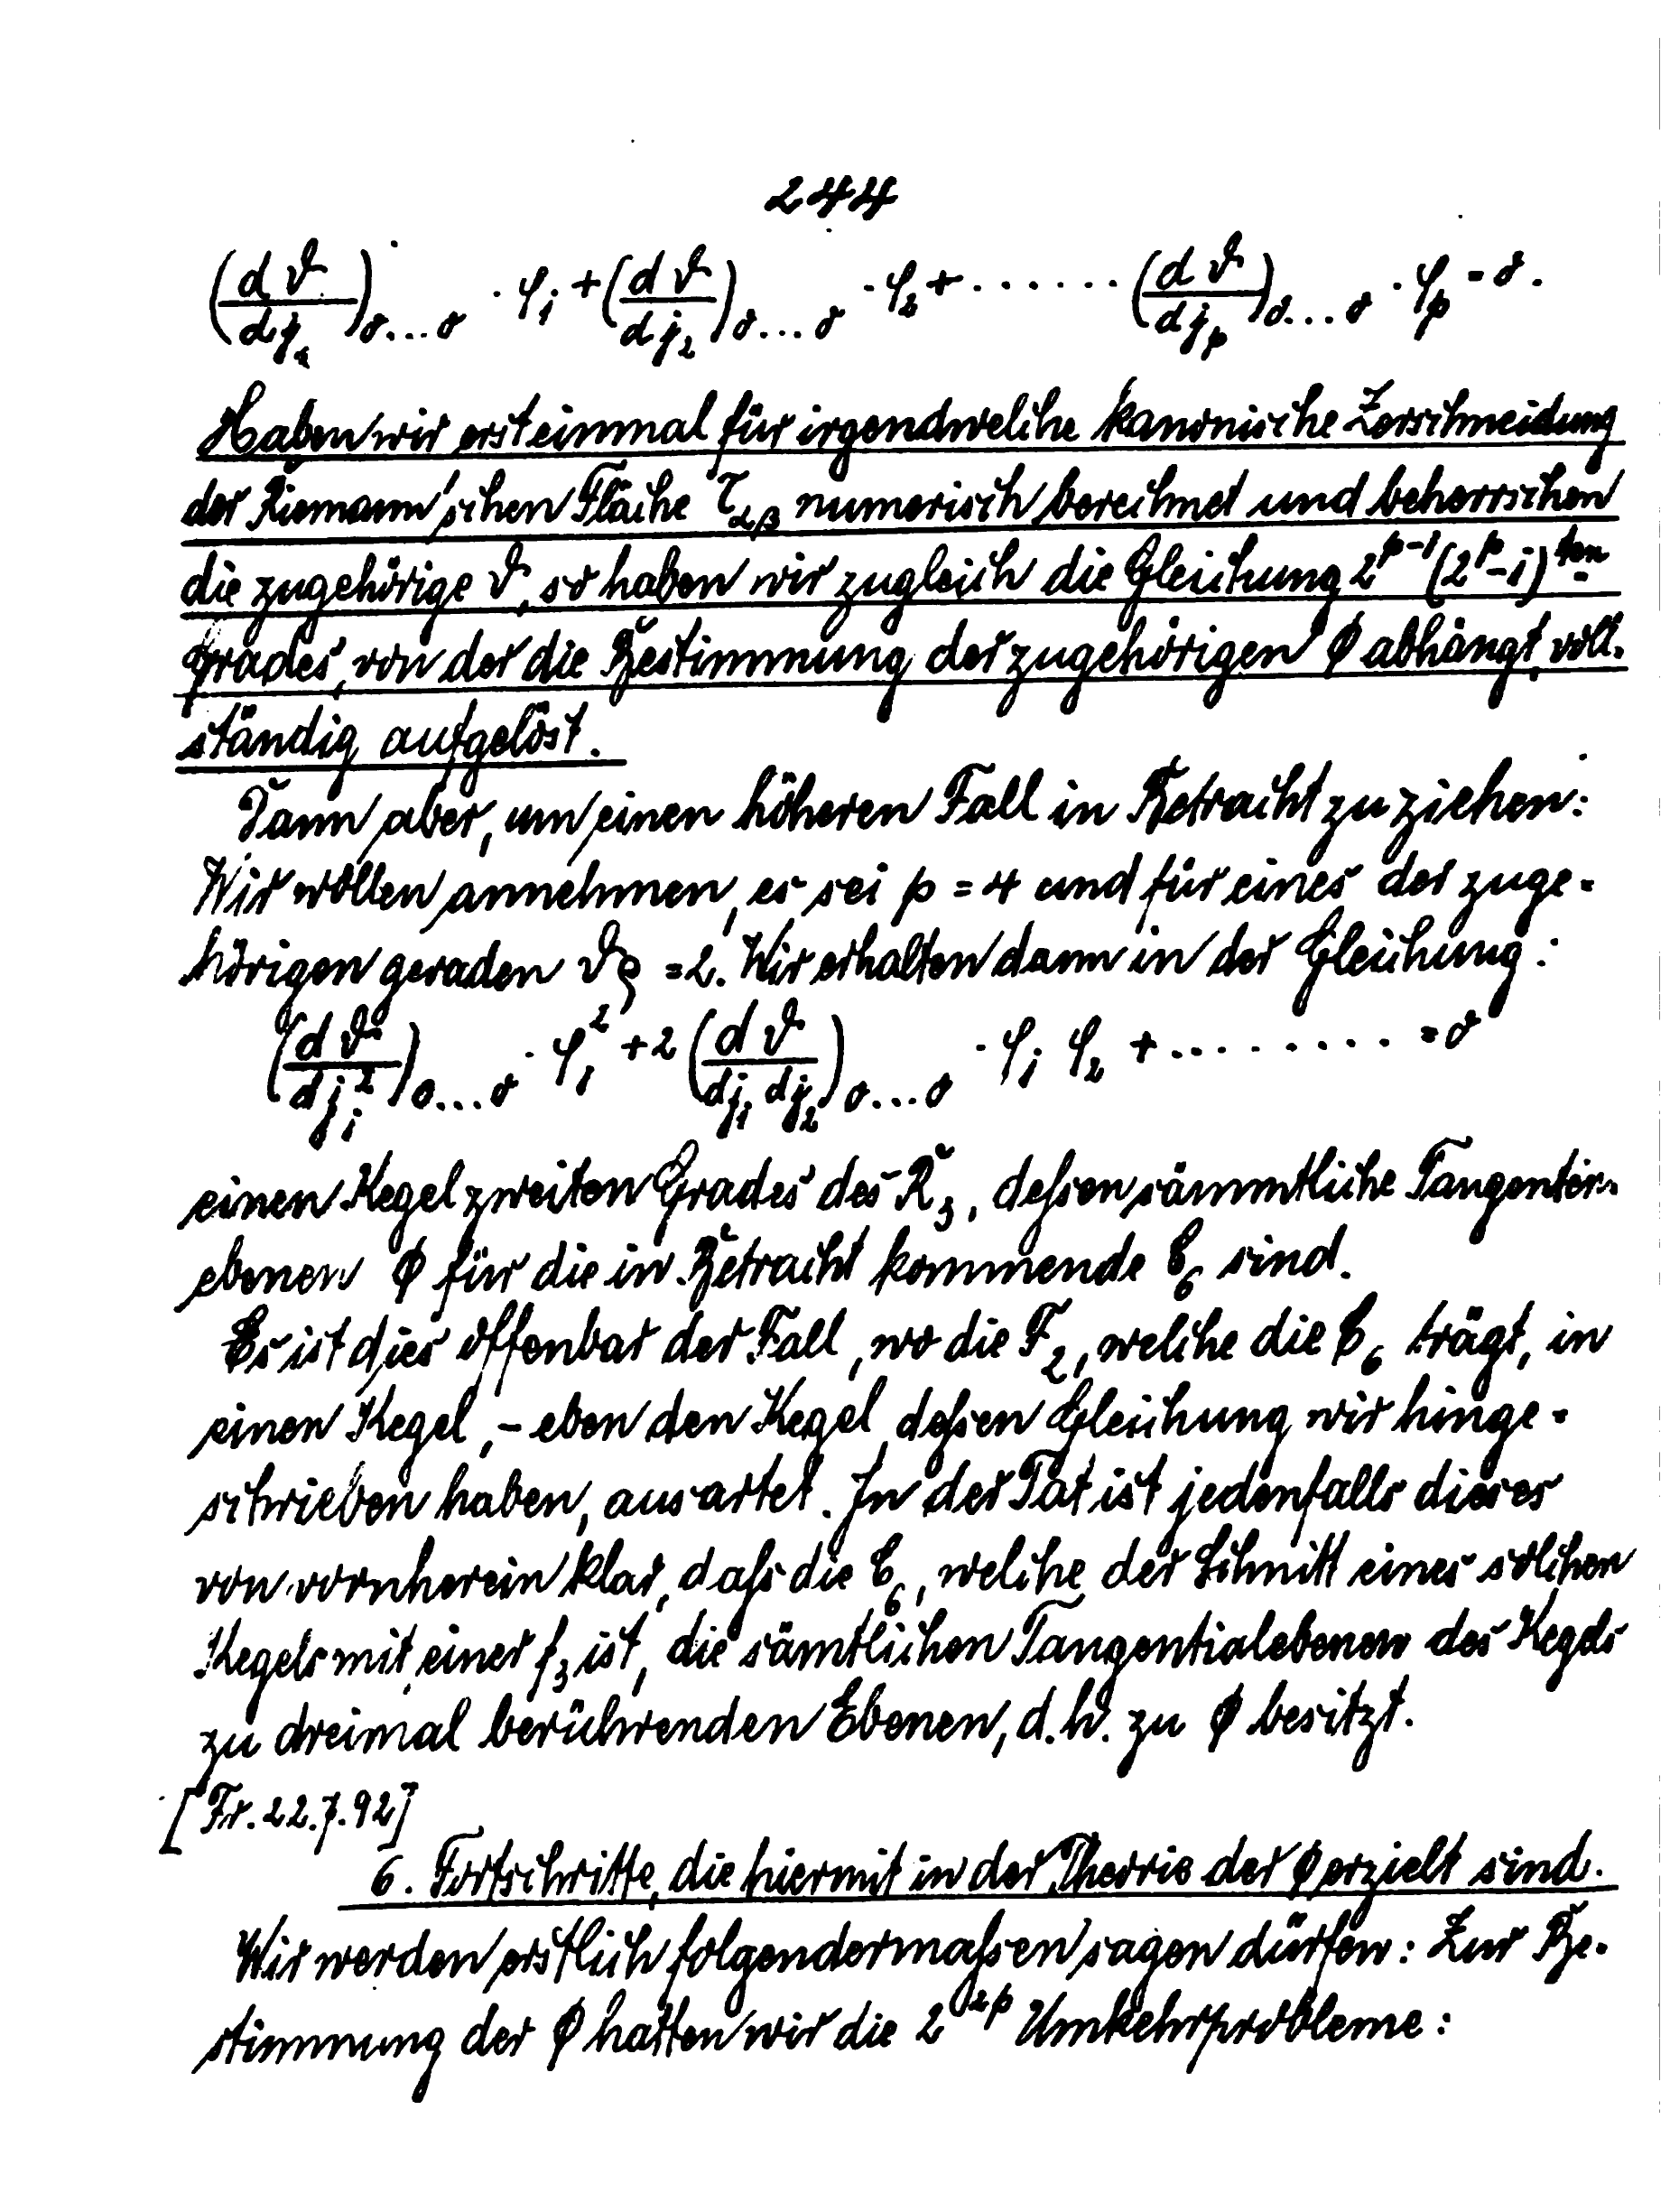 244
(dϑ/dj₁)₀...₀ · φ₁ + (dϑ/dj₂)₀...₀ · φ₂ + ....... (dϑ/djₚ)₀...₀ · φₚ = 0.
Haben wir erst einmal für irgendwelche kanonische Zerschneidung
der Riemann'schen Fläche τ_αβ numerisch berechnet und beherrschen
die zugehörige ϑ, so haben wir zugleich die Gleichung 2^{p-1}(2^p-1)^{ten}
Grades, von der die Bestimmung der zugehörigen ϕ abhängt, voll-
ständig aufgelöst.
Dann aber, um einen höheren Fall in Betracht zu ziehen:
Wir wollen annehmen, es sei p = 4 und für eines der zuge-
hörigen geraden ϑ ϱ = 2. Wir erhalten dann in der Gleichung:
(dϑ²/dj₁²)₀...₀ · φ₁² + 2 (dϑ/dj₁ dj₂)₀...₀ · φ₁ φ₂ + ......... = 0
einen Kegel zweiten Grades des R₃, deßen sämmtliche Tangenten-
ebenen ϕ für die in Betracht kommende C₆ sind.
Es ist dies offenbar der Fall, wo die F₂, welche die C₆ trägt, in
einen Kegel, - eben den Kegel, deßen Gleichung wir hinge-
schrieben haben, ausartet. In der Tat ist jedenfalls dieses
von vornherein klar, daß die C₆, welche der Schnitt eines solchen
Kegels mit einer f₃ ist, die sämtlichen Tangentialebenen des Kegels
zu dreimal berührenden Ebenen, d.h. zu ϕ besitzt.
[Fr. 22.7.92]
6. Fortschritte, die hiermit in der Theorie der ϕ erzielt sind.
Wir werden erstlich folgendermaßen sagen dürfen: Zur Be-
stimmung der ϕ hatten wir die 2^{2p} Umkehrprobleme: